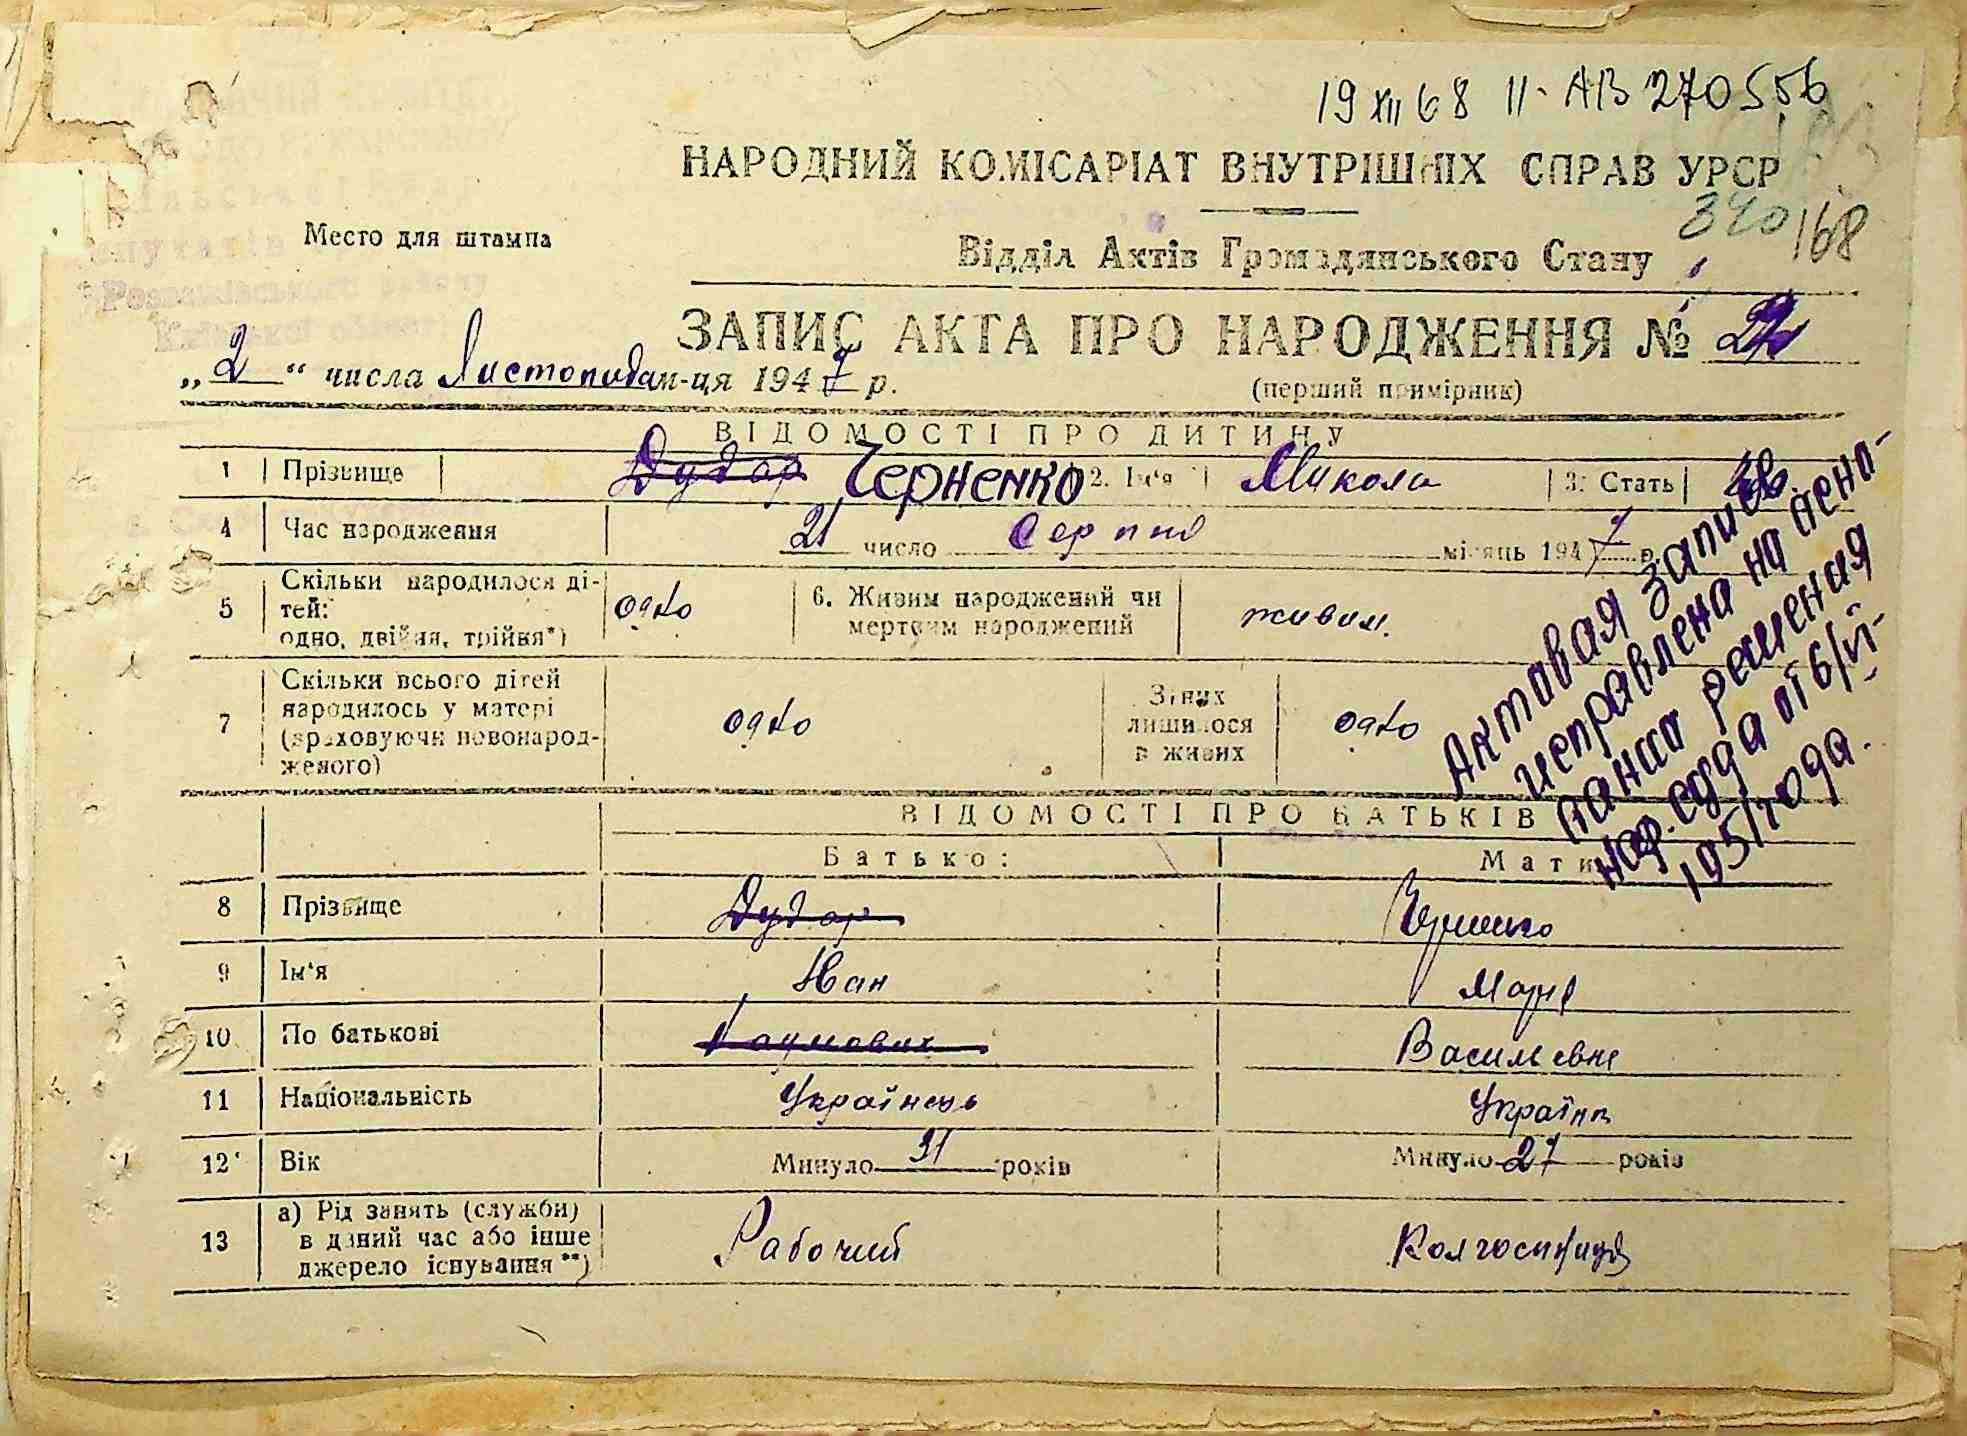 19 XII 68 II-АВ 270556
НАРОДНИЙ КОМІСАРІАТ ВНУТРІШНІХ СПРАВ УРСР
340/68
Место для штампа
Відділ Актів Громадянського Стану
Розважівського району
Київської області
ЗАПИС АКТА ПРО НАРОДЖЕННЯ №
„2“ числа Листопадам-ця 1947 р.
(перший примірник)
ВІДОМОСТІ ПРО ДИТИНУ
1 Прізвище Дудар Черненко 2. Ім'я Микола 3. Стать
4 Час народження 21 число Серпня місяць 1947 р.
5 Скільки народилося ді-
тей:
одно, двійня, трійня*) одно
6. Живим народжений чи
мертвим народжений живим.
7 Скільки всього дітей
народилось у матері
(враховуючи новонарод-
женого) одно
З них
лишилося
в живих одно
Актовая запись
исправлена на осно-
вании решения
нар. суда от 6/VI-
1951 года.
ВІДОМОСТІ ПРО БАТЬКІВ
Батько: Мати
8 Прізвище Дудар Черненко
9 Ім'я Иван Марія
10 По батькові Наумович Васильевна
11 Національність Українець Українка
12 Вік Минуло 31 років Минуло 27 років
13 а) Рід занять (служби)
в даний час або інше
джерело існування**) Рабочий Колгоспниця